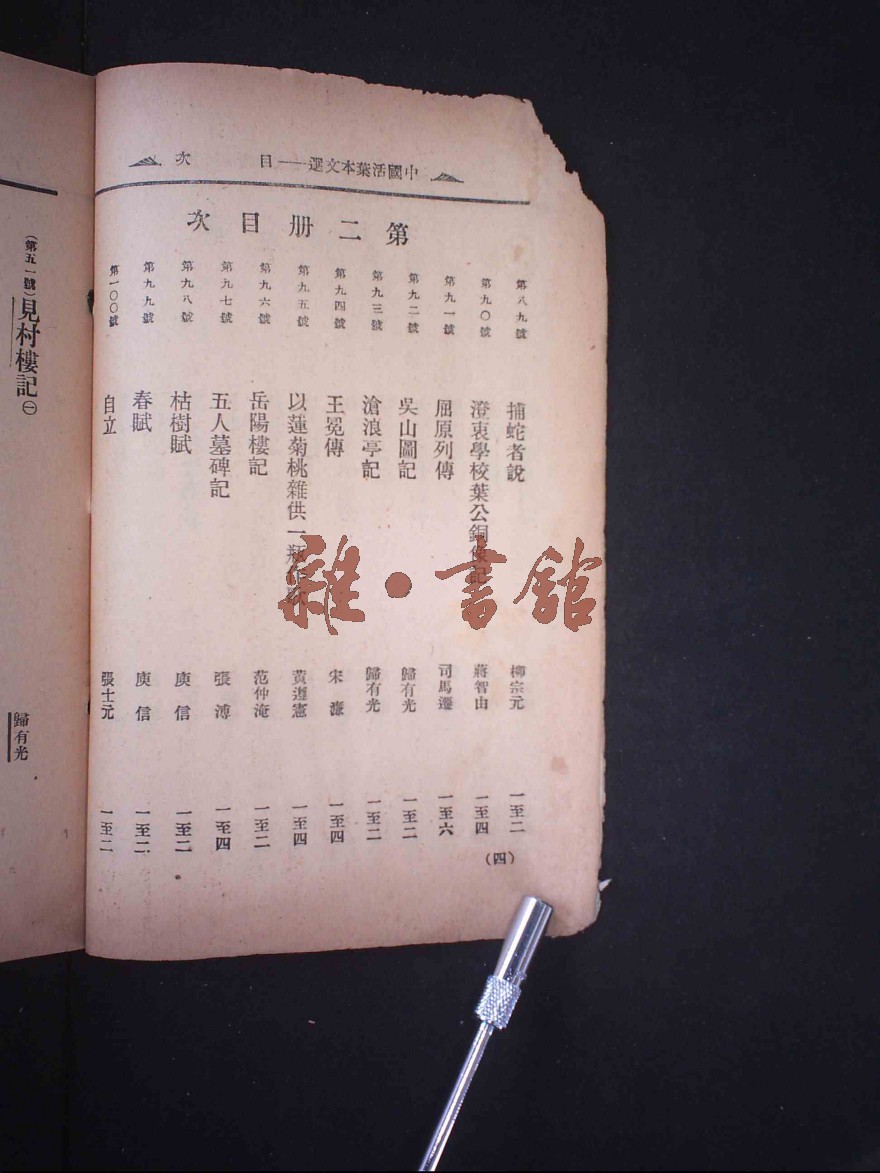 中國活葉本文選——目次
第二册目次
第八九號 捕蛇者說 柳宗元 一至二
第九〇號 澄衷學校葉公銅像記 蔣智由 一至四
第九一號 屈原列傳 司馬遷 一至六
第九二號 吳山圖記 歸有光 一至二
第九三號 滄浪亭記 歸有光 一至二
第九四號 王冕傳 宋濂 一至四
第九五號 以蓮菊桃雜供一瓶作歌 黃遵憲 一至四
第九六號 岳陽樓記 范仲淹 一至二
第九七號 五人墓碑記 張溥 一至四
第九八號 枯樹賦 庾信 一至二
第九九號 春賦 庾信 一至二
第一〇〇號 自立 張士元 一至二
(四)
(第五一號)見村樓記㊀ 歸有光
雜·書館